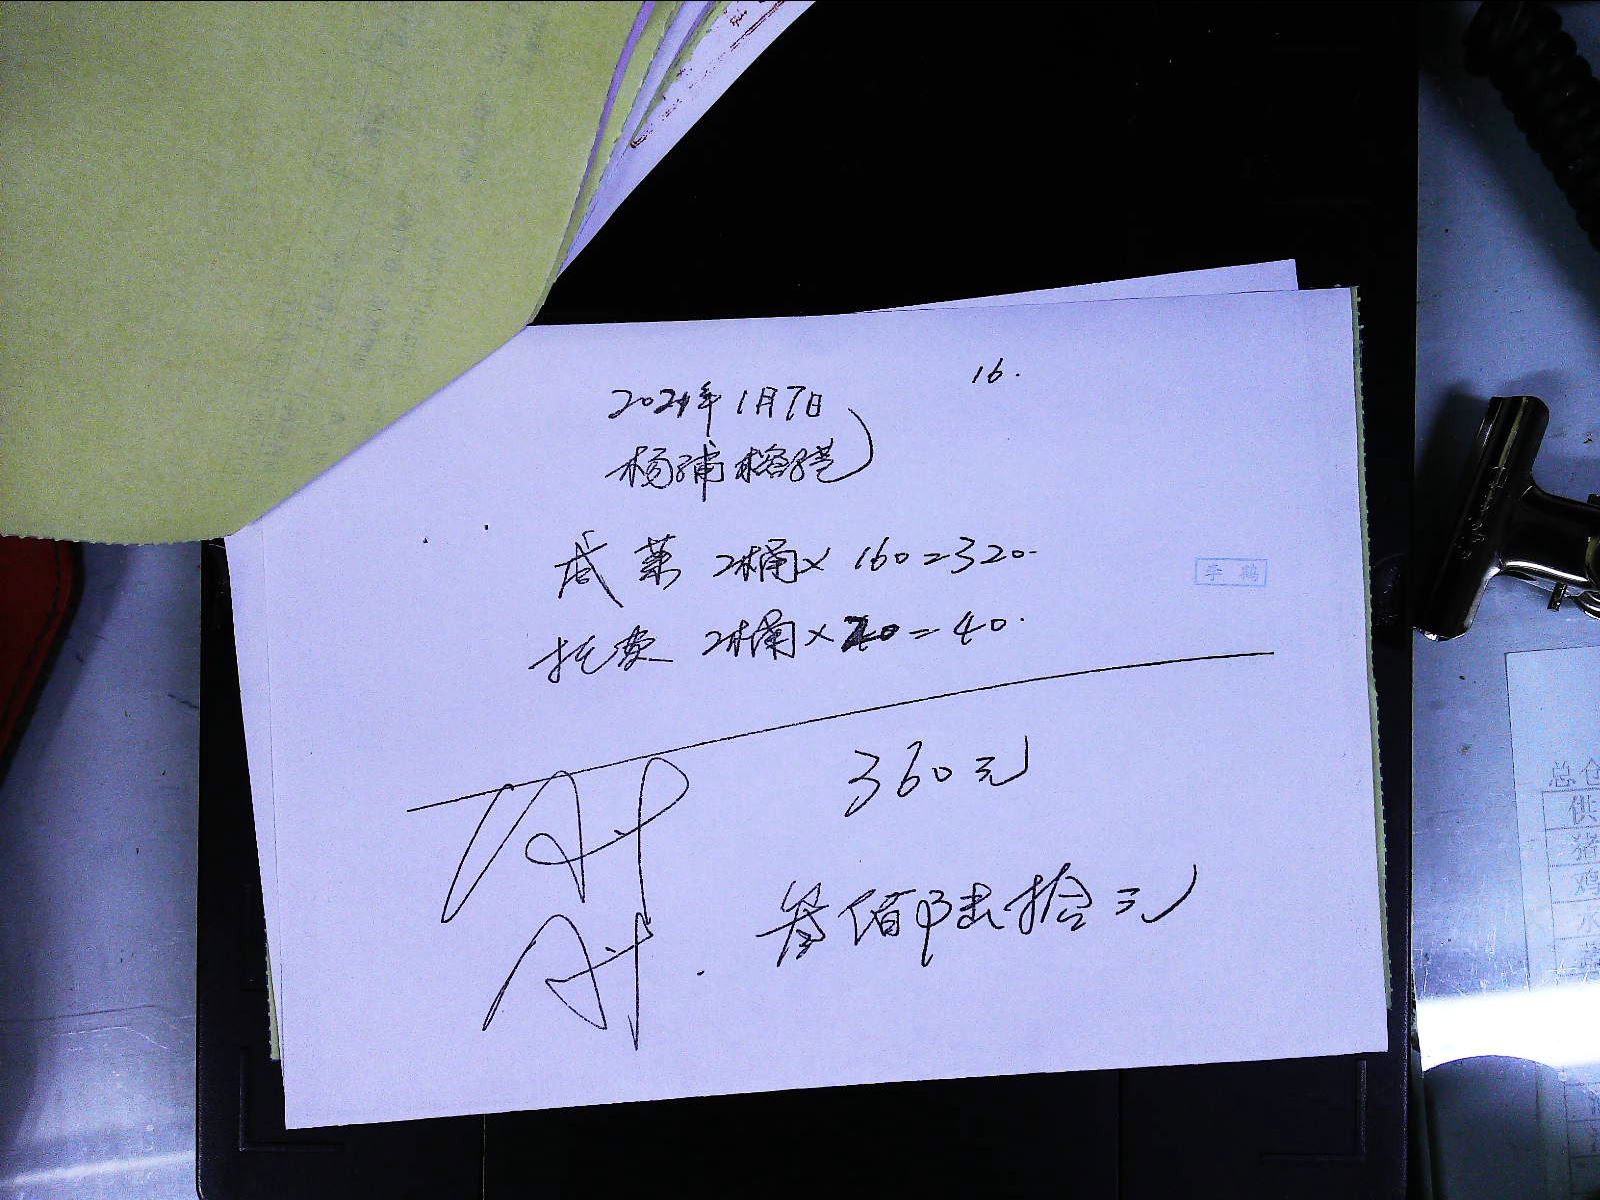 16.
2021年1月7日
杨浦榕港
咸菜 2桶×160=320.
李鹤
托费 2桶×20=40.
360元
叁佰陆拾元
总仓
供
猪
鸡
水